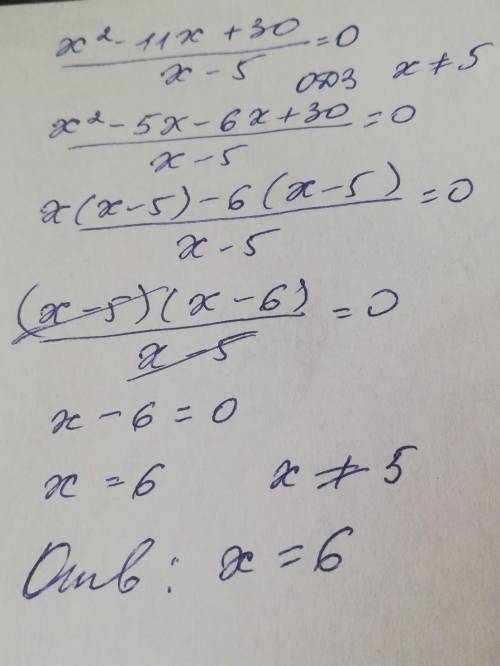 x² - 11x + 30 / x - 5 = 0
ОДЗ x ≠ 5
x² - 5x - 6x + 30 / x - 5 = 0
x(x-5) - 6(x-5) / x - 5 = 0
(x-5)(x-6) / x - 5 = 0
x - 6 = 0
x = 6 x ≠ 5
Отв: x = 6